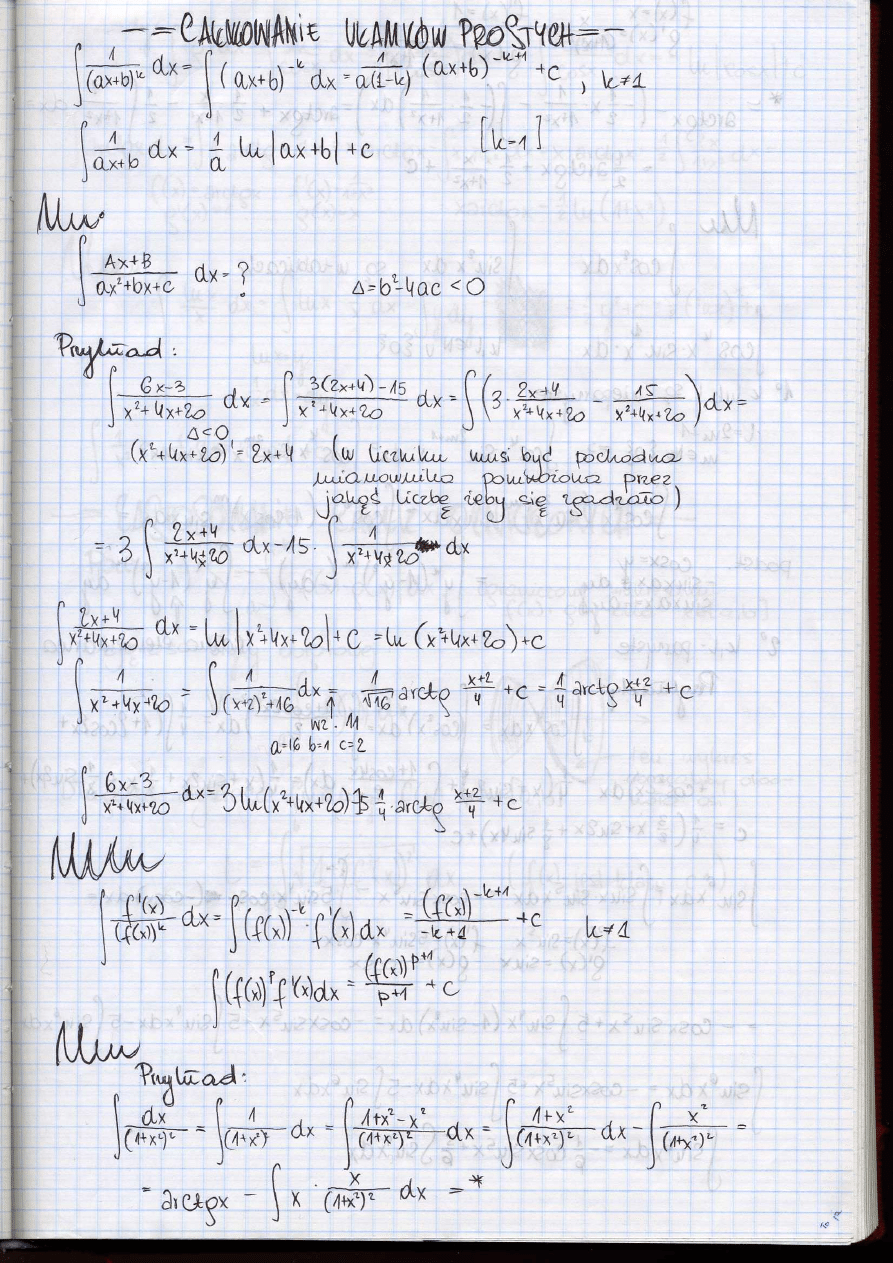 -=CAŁKOWANIE UŁAMKÓW PROSTYCH=-
∫ 1/(ax+b)^k dx = ∫ (ax+b)^-k dx = 1/a(1-k) (ax+b)^-k+1 + c , k≠1
∫ 1/ax+b dx = 1/a ln|ax+b| + c [k=1]
∫ Ax+B/ax²+bx+c dx = ? Δ=b²-4ac < 0
Przykład:
∫ 6x-3/x²+4x+20 dx = ∫ 3(2x+4)-15/x²+4x+20 dx = ∫ (3· 2x+4/x²+4x+20 - 15/x²+4x+20) dx =
Δ<0
(x²+4x+20)' = 2x+4 (w liczniku musi być pochodna
mianownika pomnożona przez
jakąś liczbę żeby się zgadzało)
= 3 ∫ 2x+4/x²+4x+20 dx - 15· ∫ 1/x²+4x+20 dx
∫ 2x+4/x²+4x+20 dx = ln|x²+4x+20| + c = ln (x²+4x+20) + c
∫ 1/x²+4x+20 = ∫ 1/(x+2)²+16 dx = 1/√16 arctg x+2/4 + c = 1/4 arctg x+2/4 + c
↑
wz. 11
a=16 b=1 c=2
∫ 6x-3/x²+4x+20 dx = 3 ln(x²+4x+20) - 15 1/4 · arctg x+2/4 + c
∫ f'(x)/(f(x))^k dx = ∫ (f(x))^-k · f'(x) dx = (f(x))^-k+1/-k+1 + c k≠1
∫ (f(x))^p f'(x) dx = (f(x))^p+1/p+1 + c
Przykład:
∫ dx/(1+x²)² = ∫ 1/(1+x²)² dx = ∫ 1+x²-x²/(1+x²)² dx = ∫ 1+x²/(1+x²)² dx - ∫ x²/(1+x²)² =
= arctgx - ∫ x · x/(1+x²)² dx = *